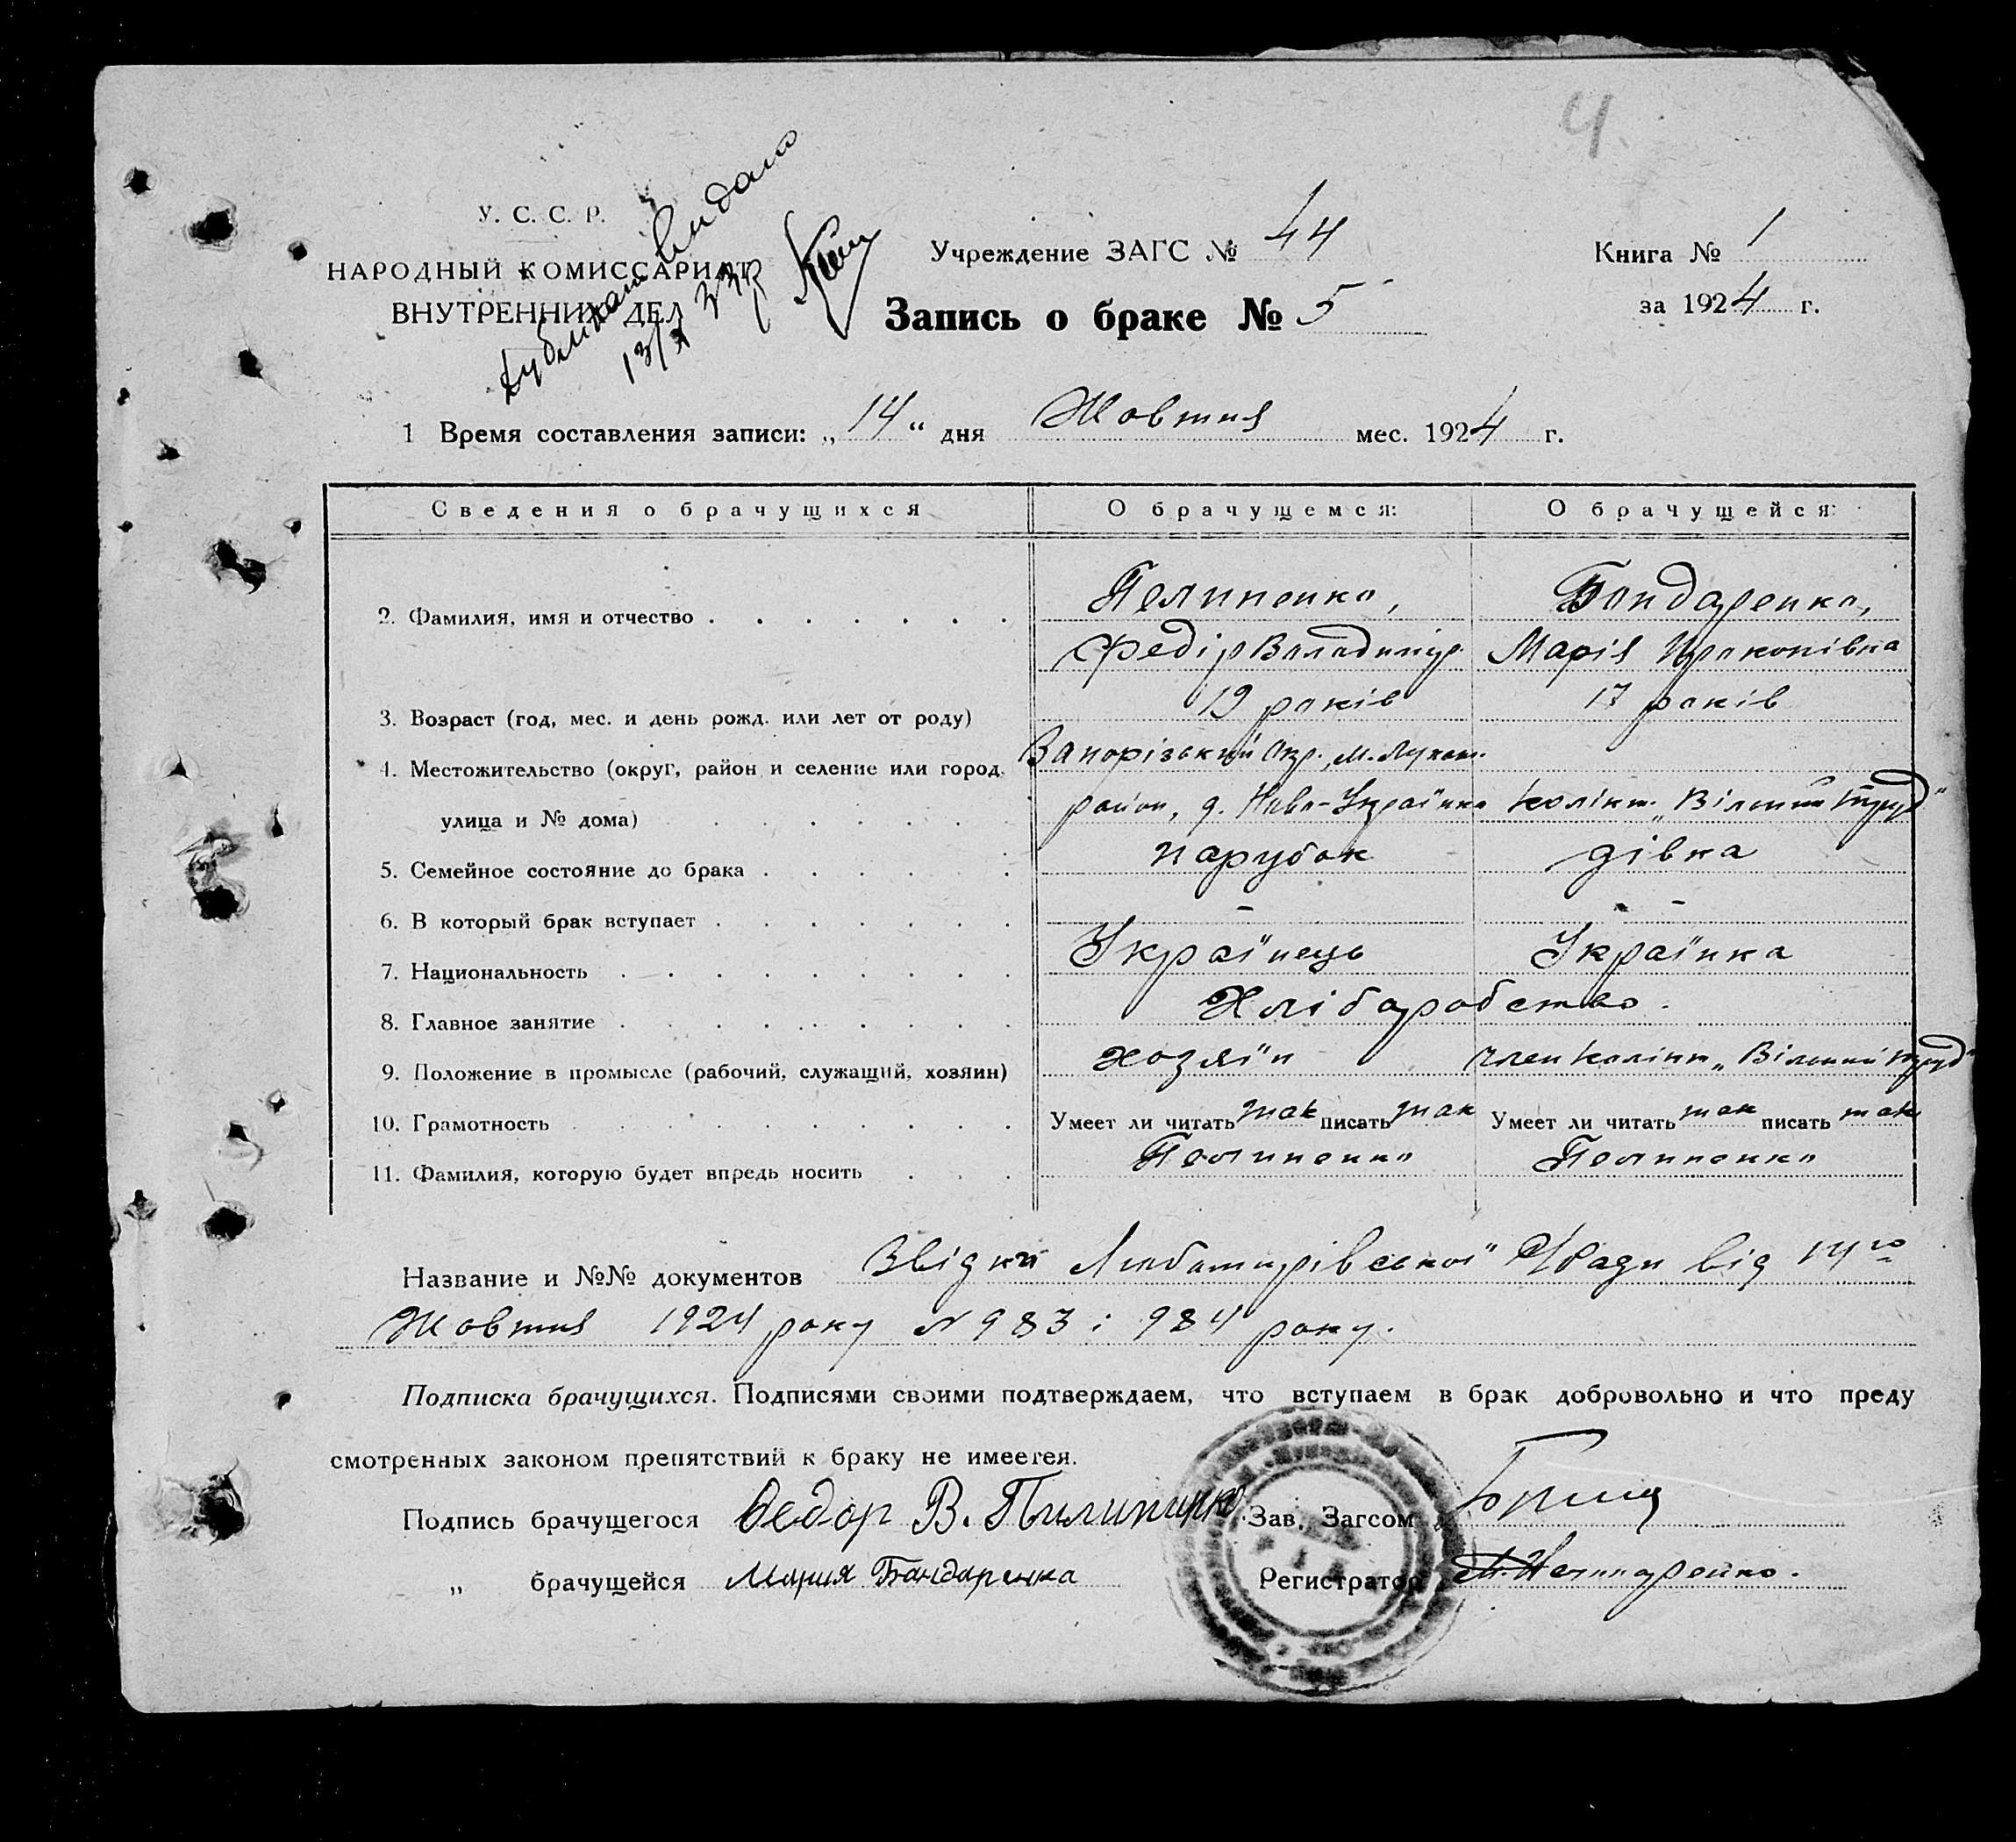 4.
У. С. С. Р.
НАРОДНЫЙ КОМИССАРИАТ
ВНУТРЕННИХ ДЕЛ
Дублікат видано
13/X 33р
Учреждение ЗАГС № 44
Книга № 1
за 1924 г.
Запись о браке № 5
1 Время составления записи: „ 14 “ дня Жовтня мес. 1924 г.
Сведения о брачущихся О брачущемся: О брачущейся:
2. Фамилия, имя и отчество Пелипенко, Бондаренко,
Федір Володимір. Марія Прокопівна
3. Возраст (год, мес. и день рожд. или лет от роду) 19 років 17 років
4. Местожительство (округ, район и селение или город, Запорізький Окр., М.-Лукаш.
улица и № дома) район, д. Ново-Українка Колікт. „Вільний труд“
5. Семейное состояние до брака парубок дівка
6. В который брак вступает – –
7. Национальность Українець Українка
8. Главное занятие Хліборобство.
9. Положение в промысле (рабочий, служащий, хозяин) хозяїн член колікт „Вільний труд“
10. Грамотность Умеет ли читать так писать так Умеет ли читать так писать так
11. Фамилия, которую будет впредь носить Пелипенко Пелипенко
Название и №№ документов Звідки Любомирівської С/Ради від 14го
Жовтня 1924 року № 983 і 984 року.
Подписка брачущихся. Подписями своими подтверждаем, что вступаем в брак добровольно и что преду
смотренных законом препятствий к браку не имеется.
Подпись брачущегося Федор В. Пилипенко Зав. Загсом
„ брачущейся Мария Бандаренка Регистратор